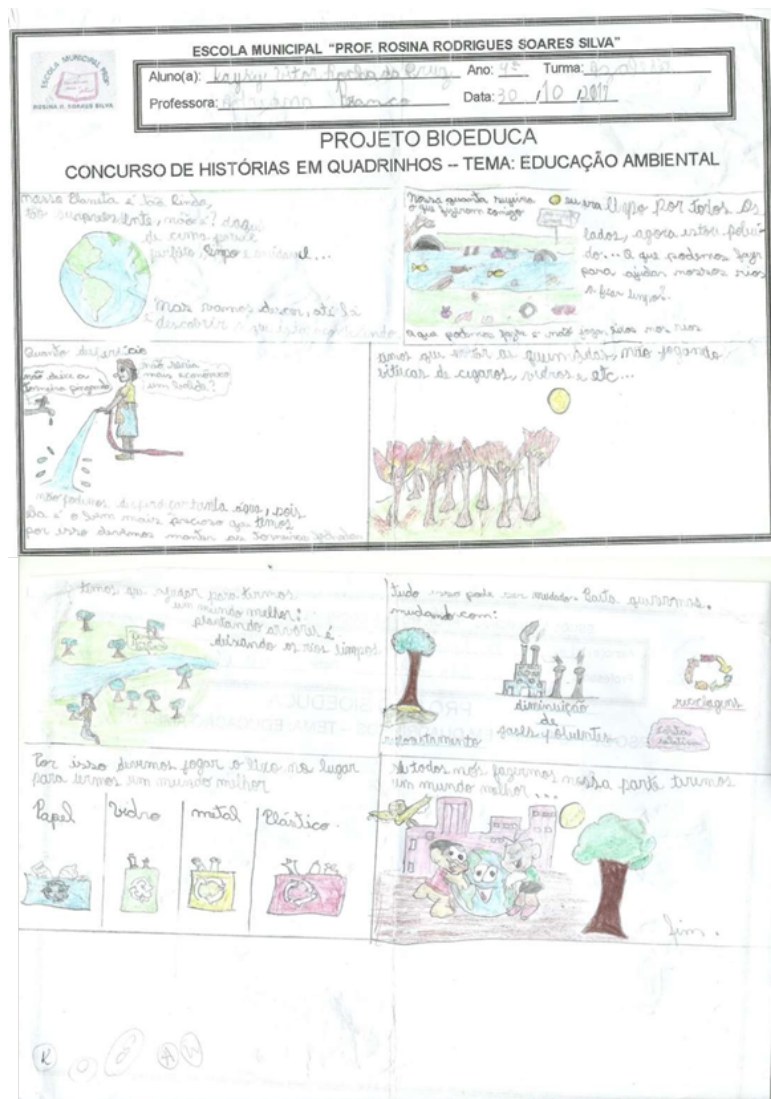 ESCOLA MUNICIPAL "PROF. ROSINA RODRIGUES SOARES SILVA"
ESCOLA MUNICIPAL PROFª
ROSINA R. SOARES SILVA
Aluno(a): Vitor Rocha da Ano: 4º Turma:
Professora: Franco Data: 30 / 10 / 2017
PROJETO BIOEDUCA
CONCURSO DE HISTÓRIAS EM QUADRINHOS – TEMA: EDUCAÇÃO AMBIENTAL
nosso Planeta é tão lindo,
tão surpreendente, não é? daqui
de cima parece
perfeito, limpo e saudável...
Mas vamos descer, até lá
e descobrir o que está acontecendo
Nossa quanta sujeira
o que fizeram comigo
eu era limpo por todos os
lados, agora estou polui-
do... O que podemos fazer
para ajudar nossos rios
a ficar limpos?
o que podemos fazer é não jogar lixos nos rios
Quanto desperdício
não deixe a
torneira pingando
não seria
mais econômico
um balde?
não podemos desperdiçar tanta água, pois
ela é o bem mais precioso que temos
por isso devemos manter as torneiras
que evitar as queimadas, não jogando
bitucas de cigaros, vidros e etc...
temos que ajudar para termos
um mundo melhor:
plantando arvores é
deixando os rios limpos
tudo isso pode ser mudado. Basta querermos.
mudando com:
reflorestamento
diminuição
de
gases poluentes
reciclagens
Por isso devemos jogar o lixo no lugar
para termos um mundo melhor
Papel
Vidro
metal
Plástico.
Se todos nós fazermos nossa parte teremos
um mundo melhor...
fim.